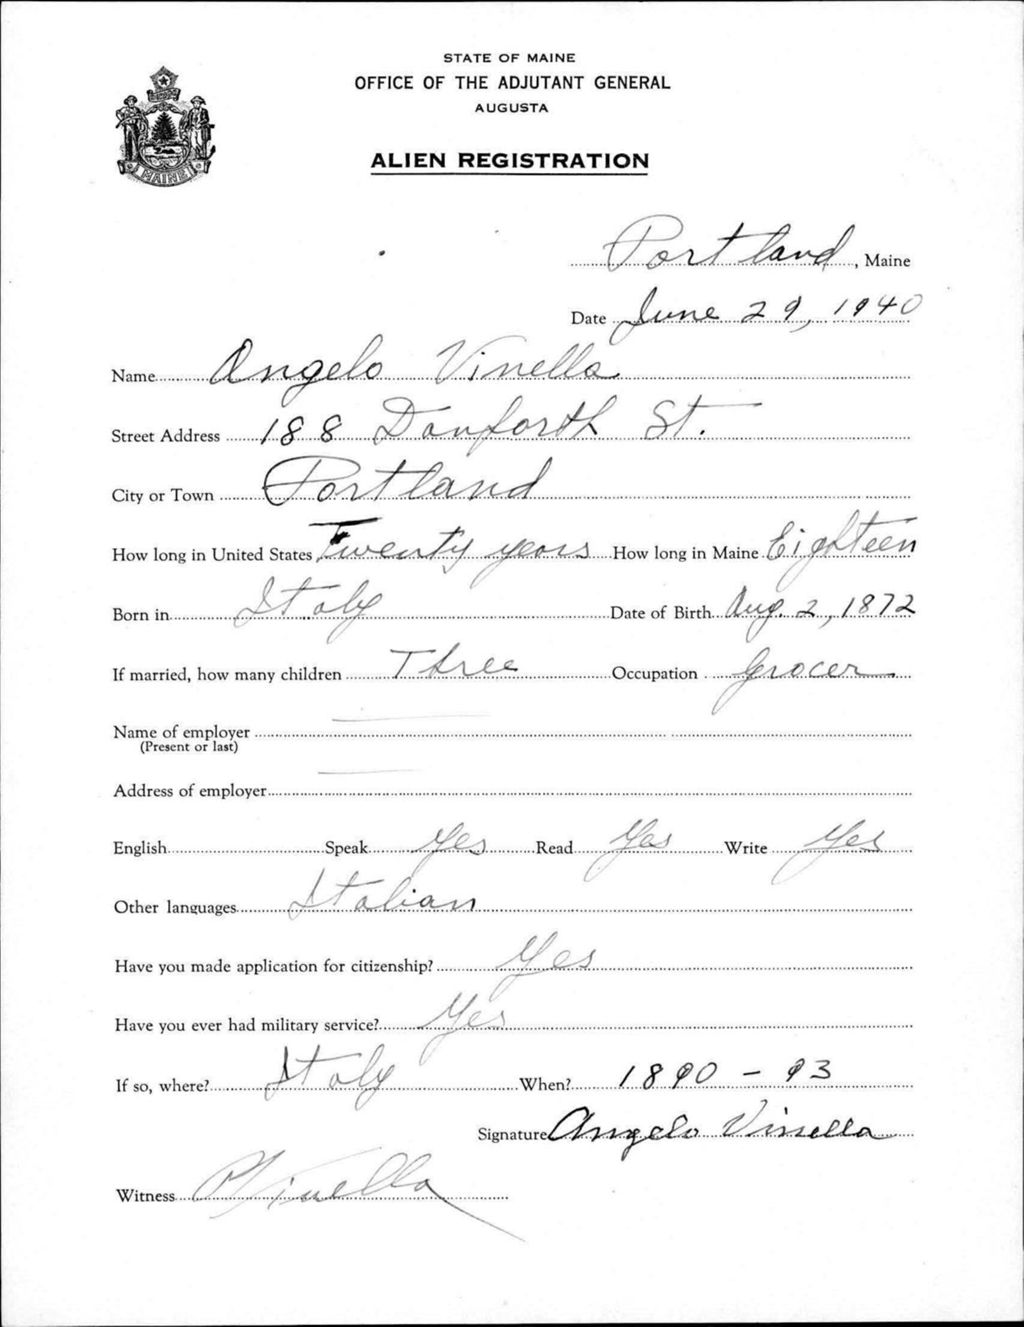 STATE OF MAINE
OFFICE OF THE ADJUTANT GENERAL
AUGUSTA
ALIEN REGISTRATION
MAINE
Portland, Maine
Date June 29, 1940
Name Angelo Vinella
Street Address 188 Danforth St.
City or Town Portland
How long in United States Twenty years How long in Maine Eighteen
Born in Italy Date of Birth Aug. 2, 1872
If married, how many children Three Occupation Grocer
Name of employer
(Present or last)
Address of employer
English Speak Yes Read Yes Write Yes
Other languages Italian
Have you made application for citizenship? Yes
Have you ever had military service? Yes
If so, where? Italy When? 1890 - 93
Signature Angelo Vinella
Witness P Vinella